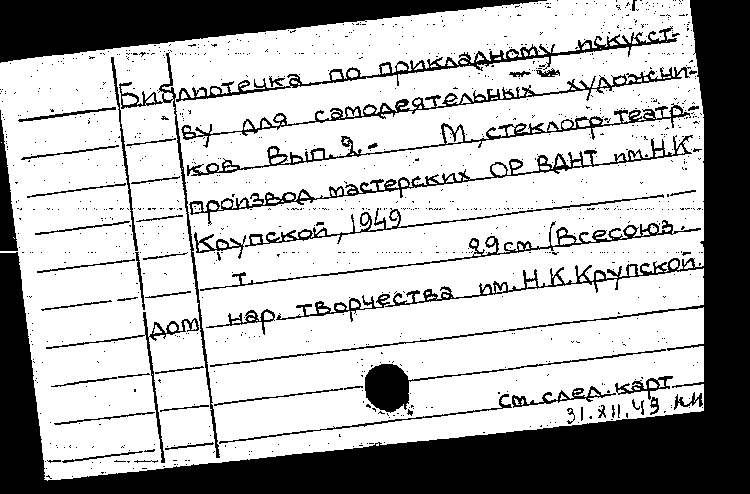 Библиотечка по прикладному искусст-
ву для самодеятельных художни-
ков. Вып. 2.- М., стеклогр. театр.-
производ. мастерских ОР ВДНТ им. Н.К.
Крупской, 1949
т. 29 см (Всесоюз.
дом нар. творчества им. Н.К. Крупской.
см. след. карт
31.XII.49